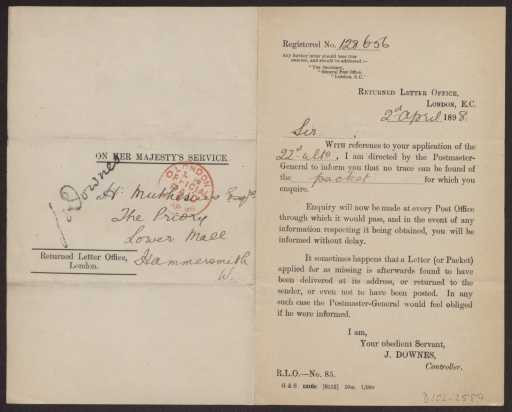 ON HER MAJESTY'S SERVICE
J Downes
H. Muthesius Esqre
The Priory
Lower Mall
Hammersmith
W.
Returned Letter Office,
London.
LONDON
OFFICIAL
PAID
Registered No. 128656
Any further letter should bear this
number, and should be addressed:—
"The Secretary,
"General Post Office,
"London, E.C."
RETURNED LETTER OFFICE,
LONDON, E.C.
2nd April 1898.
Sir,
WITH reference to your application of the
22nd ulto, I am directed by the Postmaster-
General to inform you that no trace can be found of
the packet for which you
enquire.
Enquiry will now be made at every Post Office
through which it would pass, and in the event of any
information respecting it being obtained, you will be
informed without delay.
It sometimes happens that a Letter (or Packet)
applied for as missing is afterwards found to have
been delivered at its address, or returned to the
sender, or even not to have been posted. In any
such case the Postmaster-General would feel obliged
if he were informed.
I am,
Your obedient Servant,
J. DOWNES,
Controller.
R.L.O.—No. 85.
G & S
D102-2589